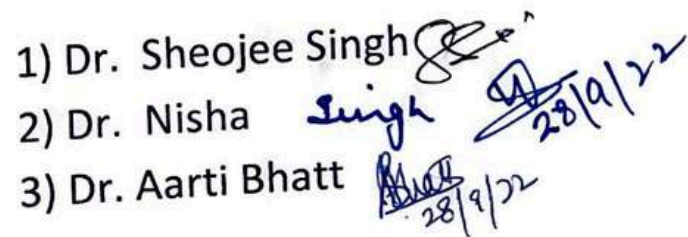 1) Dr. Sheojee Singh
2) Dr. Nisha Singh 28/9/22
3) Dr. Aarti Bhatt ABhatt 28/9/22